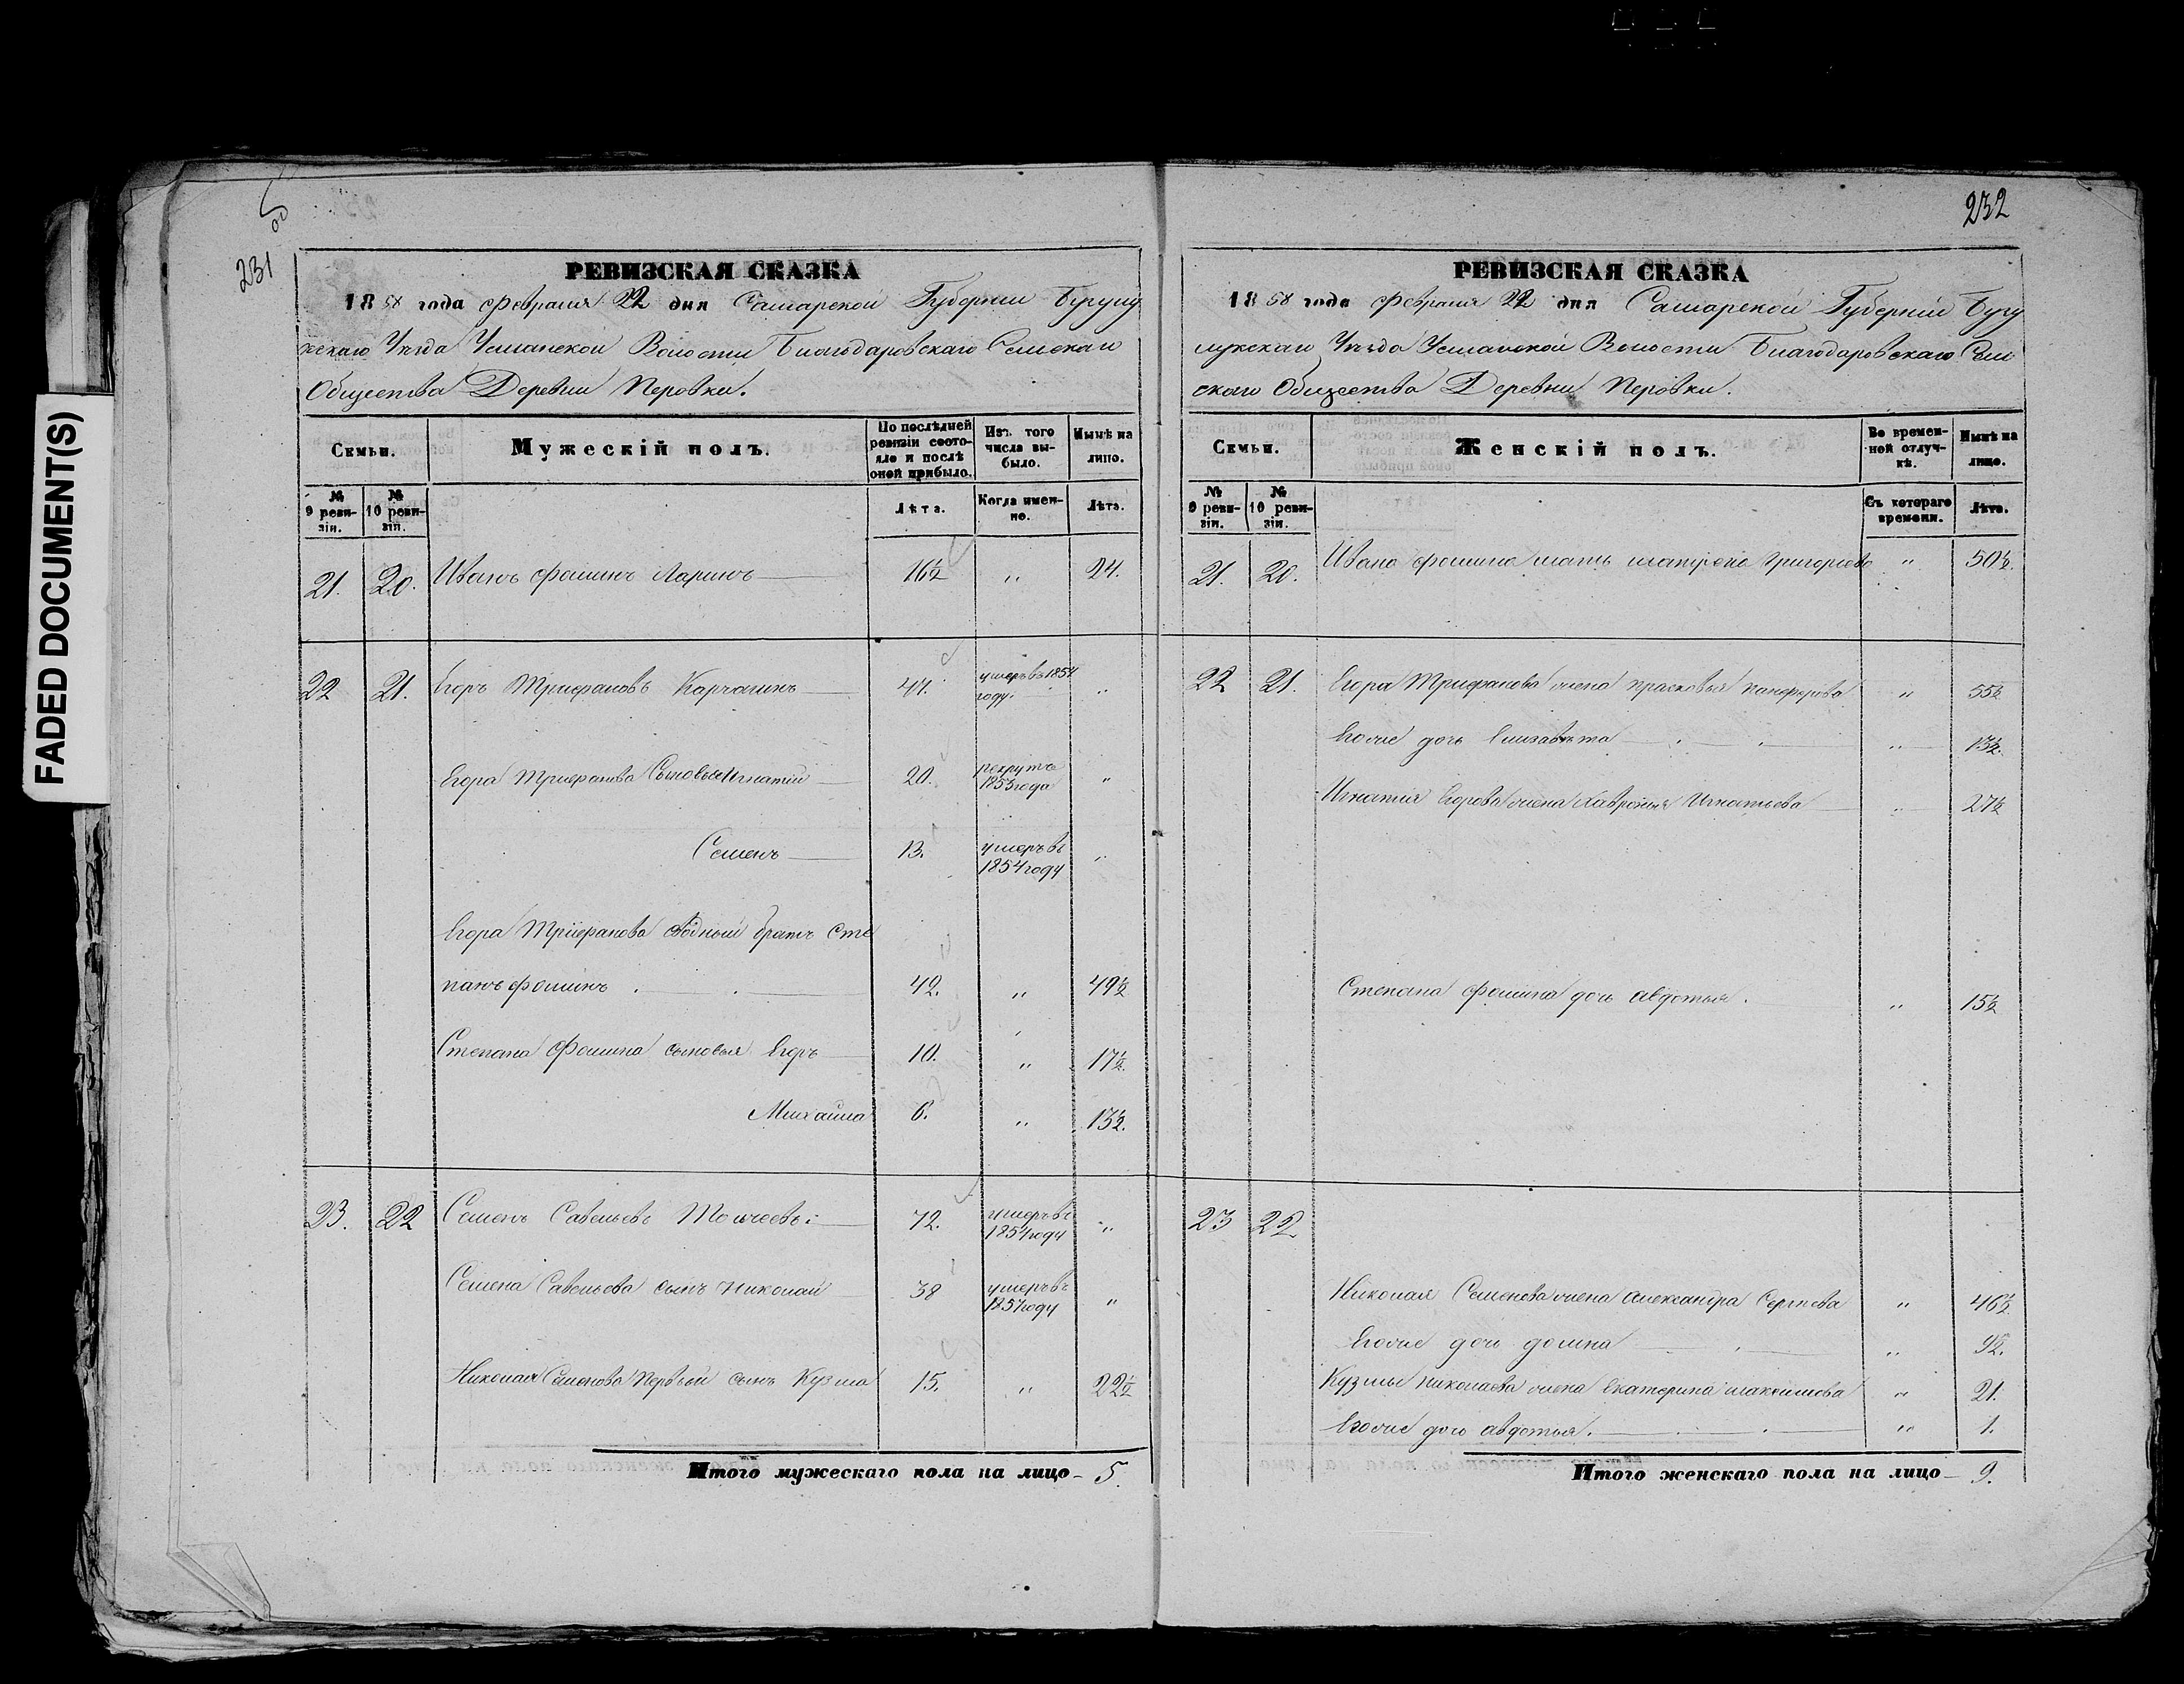 FADED DOCUMENT(S)
231
РЕВИЗСКАЯ СКАЗКА
1858 года Февраля 22 дня Самарской Губернии Бугуль
Уѣзда Волости Благодаровскаго Сельскаго
Общества Деревни Перовки.
Семьи.
Мужескій полъ.
По послѣдней ревизіи состояло и послѣ оной прибыло.
Изъ того числа выбыло.
Нынѣ на лицо.
№ 9 ревизіи.
№ 10 ревизіи.
Лѣта.
Когда именно.
Лѣта.
21. 20. Иванъ Фоминъ Ларинъ 16½ " 24.
22 21. Егоръ Трифановъ Карчагинъ умеръ въ 1854 году. "
Егора Трифанова Сыновья Игнатій 20. рекрутъ 1855 года "
Семенъ 13. умеръ въ 1854 году "
Егора Трифанова сводный братъ Сте
панъ Фоминъ 42. " 49½
Степана Фомина сыновья Егоръ 10. " 17½
Михайла 6. " 13½.
23. 22 Семенъ Савельевъ 72. умеръ въ 1854 году "
Семена Савельева сынъ Николай 38 умеръ въ 1857 году "
Николая Семенова первый сынъ Кузма 15. " 22½
Итого мужескаго пола на лицо 5.
232
РЕВИЗСКАЯ СКАЗКА
1858 года Февраля 22 дня Самарской Губерніи Бугу
льмскаго Уѣзда Волости Благодаровскаго Сель
скаго Общества Деревни Перовки.
Семьи.
Женскій полъ.
Во временной отлучкѣ.
Нынѣ на лицо.
№ 9 ревизіи.
№ 10 ревизіи.
Съ котораго времени.
Лѣта.
21. 20. Ивана Фомина мать матрена Григорьева " 50½.
22 21. Егора Трифанова жена прасковья панферова " 55½
Егоже дочь Елизавѣта " 13½.
Игнатія Егорова жена хавронья Игнатьева " 27½
Степана Фомина дочь авдотья. " 15½
23 22
Николая Семенова жена александра Сергѣева " 46½
Егоже дочь домна " 9½.
Кузмы николаева жена екатерина максимова " 21.
Егоже дочь авдотья. " 1.
Итого женскаго пола на лицо 9.